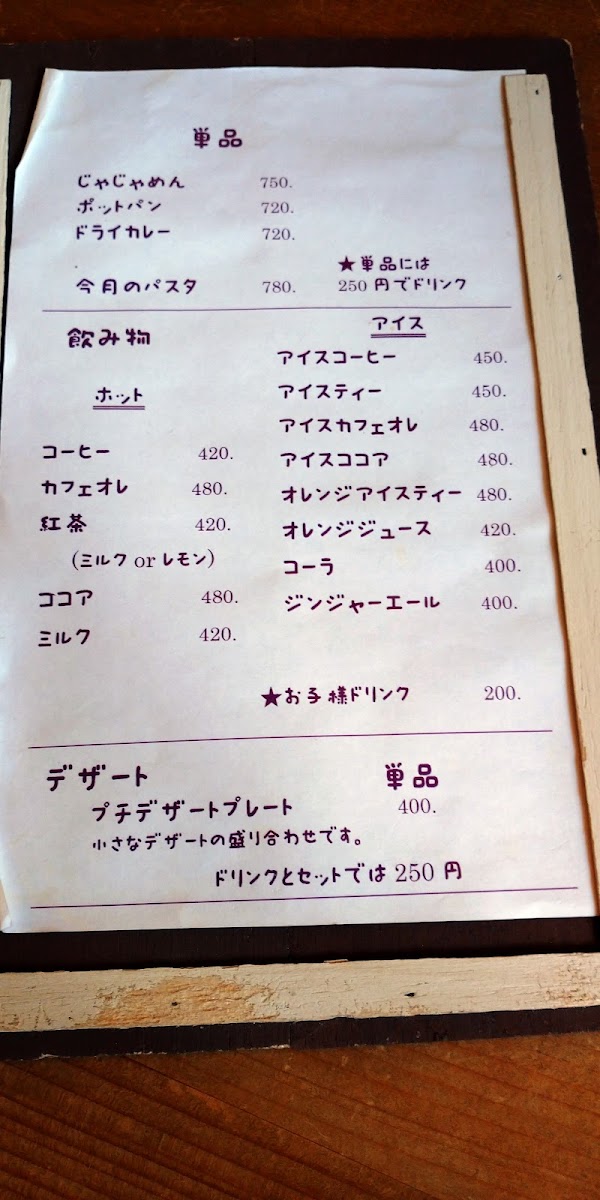 単品
じゃじゃめん 750.
ポットパン 720.
ドライカレー 720.
今月のパスタ 780.
★単品には
250 円でドリンク
飲み物
ホット
コーヒー 420.
カフェオレ 480.
紅茶 420.
(ミルク or レモン)
ココア 480.
ミルク 420.
アイス
アイスコーヒー 450.
アイスティー 450.
アイスカフェオレ 480.
アイスココア 480.
オレンジアイスティー 480.
オレンジジュース 420.
コーラ 400.
ジンジャーエール 400.
★お子様ドリンク 200.
デザート 単品
プチデザートプレート 400.
小さなデザートの盛り合わせです。
ドリンクとセットでは 250 円